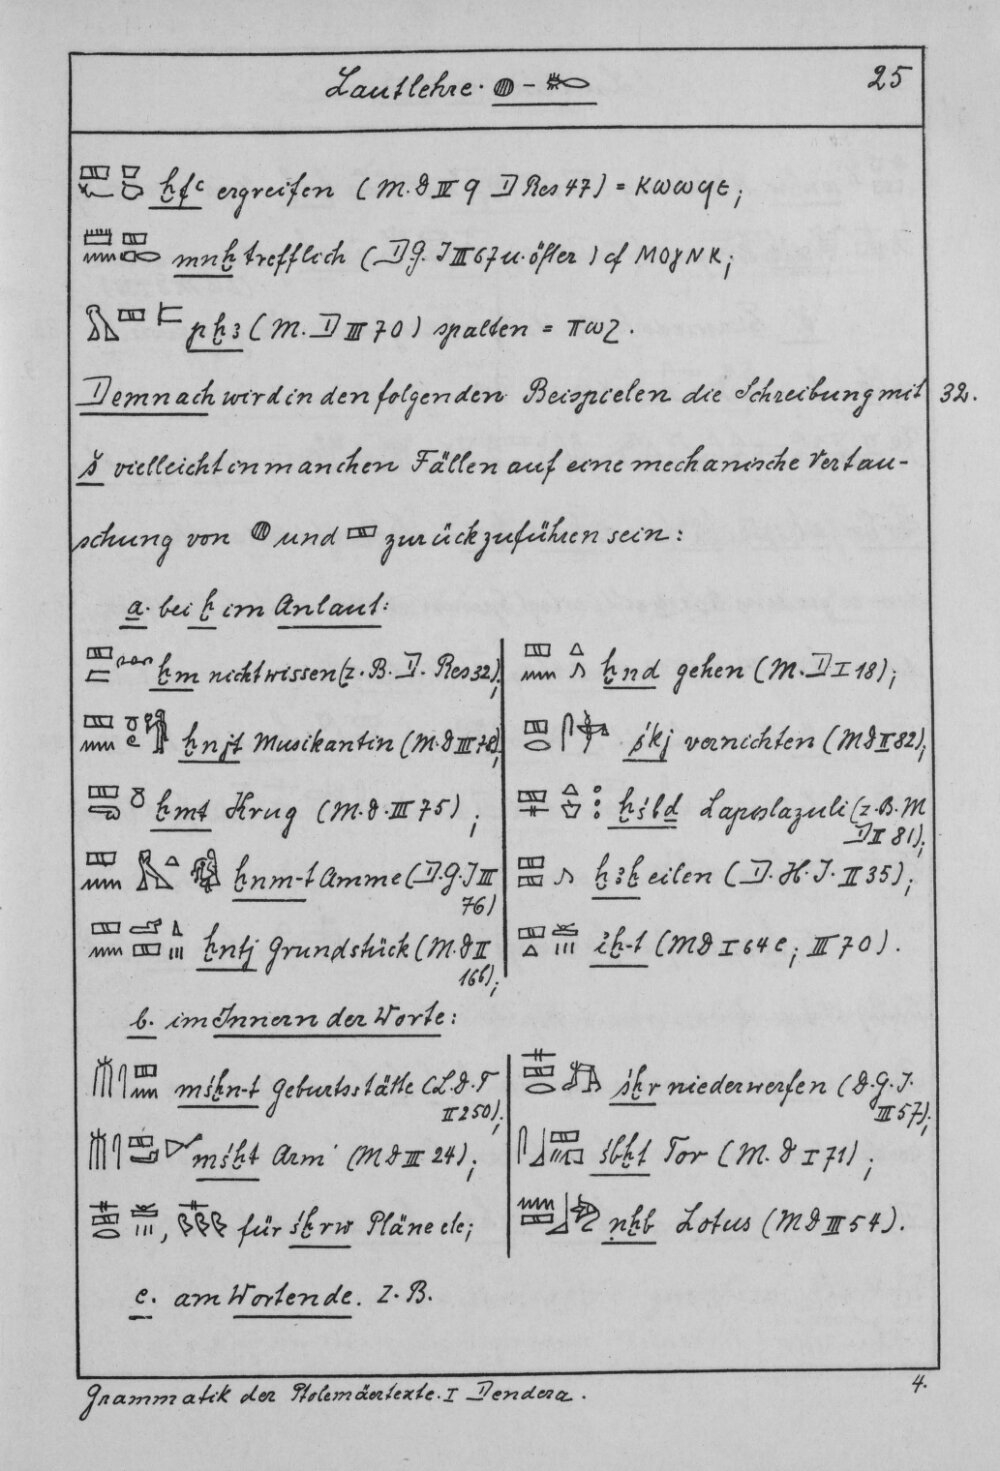 Lautlehre. 𓐍 - 𓄡 25
𓈙 ḫfꜥ ergreifen (M.D IV 9 D Res 47) = ⲕⲱⲱϥⲉ;
𓏠𓈙𓈖 mnḫ trefflich (D.G.I III 67 u. öfter) cf ⲙⲟⲩⲛⲕ;
pḫꜣ (M. D III 70) spalten = ⲡⲱϩ.
Demnach wird in den folgenden Beispielen die Schreibung mit 32.
š vielleicht in manchen Fällen auf eine mechanische Vertau-
schung von 𓐍 und 𓈙 zurückzuführen sein:
a. bei ḫ im Anlaut:
ḫm nicht wissen (z.B. D. Res 32);
ḫnjt Musikantin (M.D III 78);
ḫmt Krug (M.D. III 75);
ḫnm-t Amme (D.G.I III
76)
ḫntj Grundstück (M.D II
166);
ḫnd gehen (M.D I 18);
śkj vernichten (MD II 82);
ḫśbḏ Lapislazuli (z.B. M
D II 81);
ḫꜣḫ eilen (D.H.I. II 35);
iḫ-t (MD I 64e; III 70).
b. im Innern der Worte:
mśḫn-t Geburtsstätte (L.D.T
II 250);
mśḫt Arm (MD III 24);
, für śḫrw Pläne etc;
śḫr niederwerfen (D.G.I.
III 57);
śbḫt Tor (M.D I 71);
nḫb Lotus (MD III 54).
c. am Wortende. z.B.
Grammatik der Ptolemäertexte. I Dendera. 4.